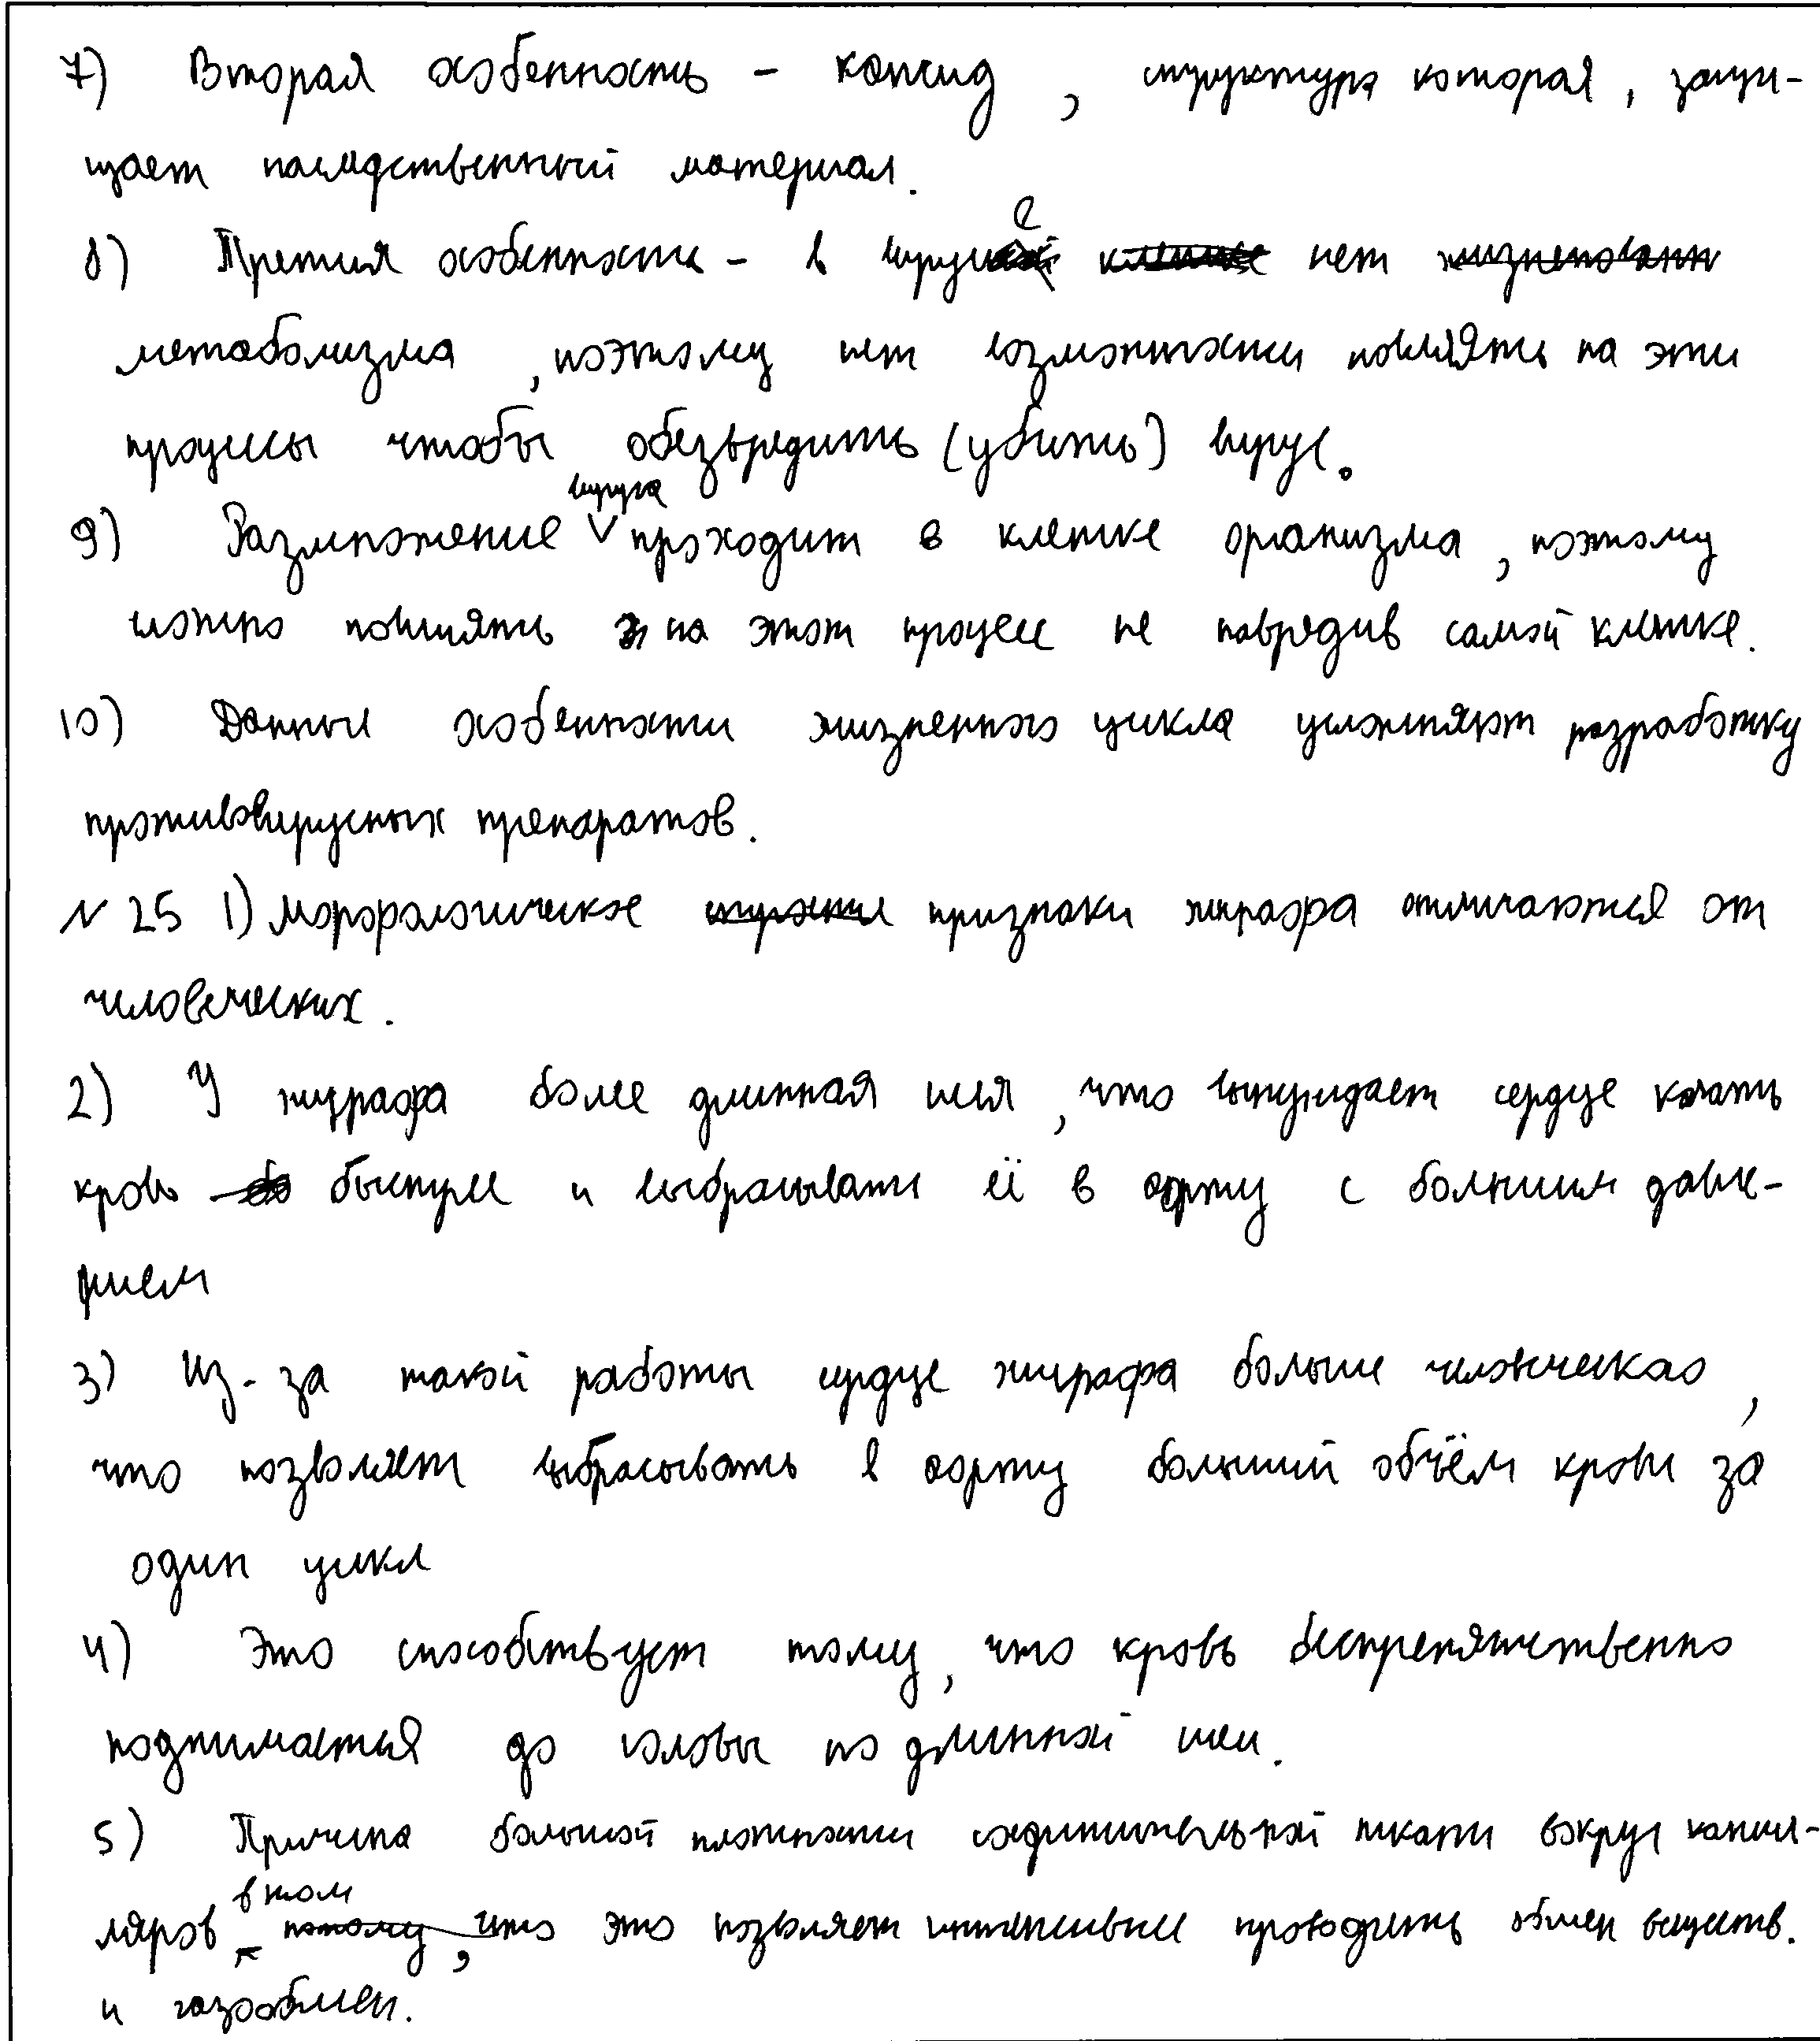 7) Вторая особенность - капсид, структура которая, защи-
щает наследственный материал.
8) Третия особенность - в вирусе нет
метаболизма, поэтому нет возможности повлиять на эти
процессы чтобы обезвредить (убить) вирус.
9) Размножение вируса проходит в клетке организма, поэтому
повлиять на этот процесс не навредив самой клетке.
10) Данные особенности жизненного цикла усложняют разработку
противовирусных препаратов.
№ 25 1) Морфологическое признаки жирафа отличаются от
человеческих.
2) У жирафа более длинная шея, что вынуждает сердце качать
кровь быстрее и выбрасывать её в аорту с большим давле-
нием
3) Из-за такой работы сердце жирафа больше человеческого,
что позволяет выбрасывать в аорту больший объём крови за
один цикл
4) Это способствует тому, что кровь беспрепятственно
поднимается до головы по длинной шеи.
5) Причина большой плотности соединительной ткани вокруг капил-
ляров в том, что это позволяет интенсивнее проводить обмен веществ.
и газообмен.